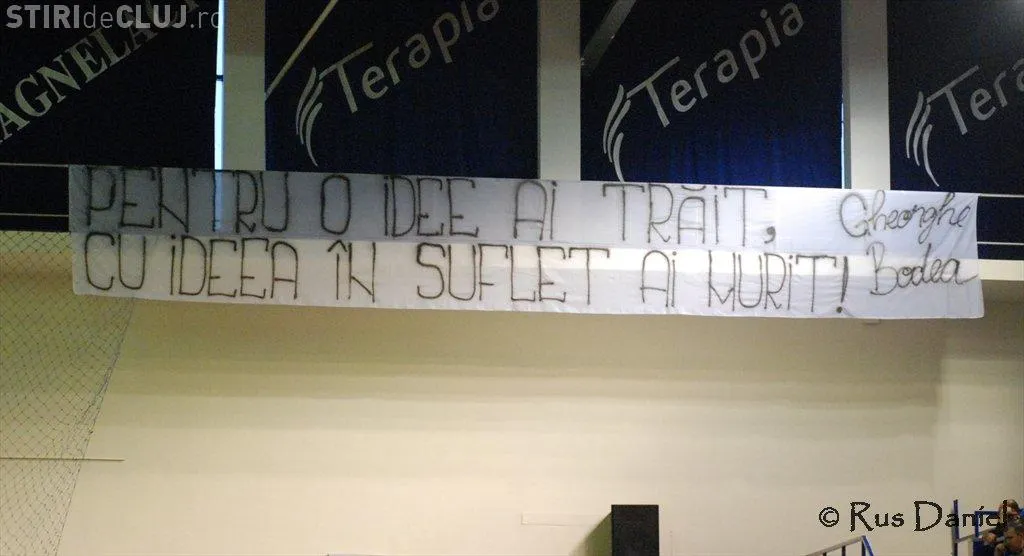 ȘTIRIdeCLUJ.ro
AGNELA
Terapia
Terapia
Terapia
PENTRU O iDEE Ai TRĂiT, Gheorghe
CU iDEEA ÎN SUFLET Ai MURiT! Bodea
© Rus Daniel